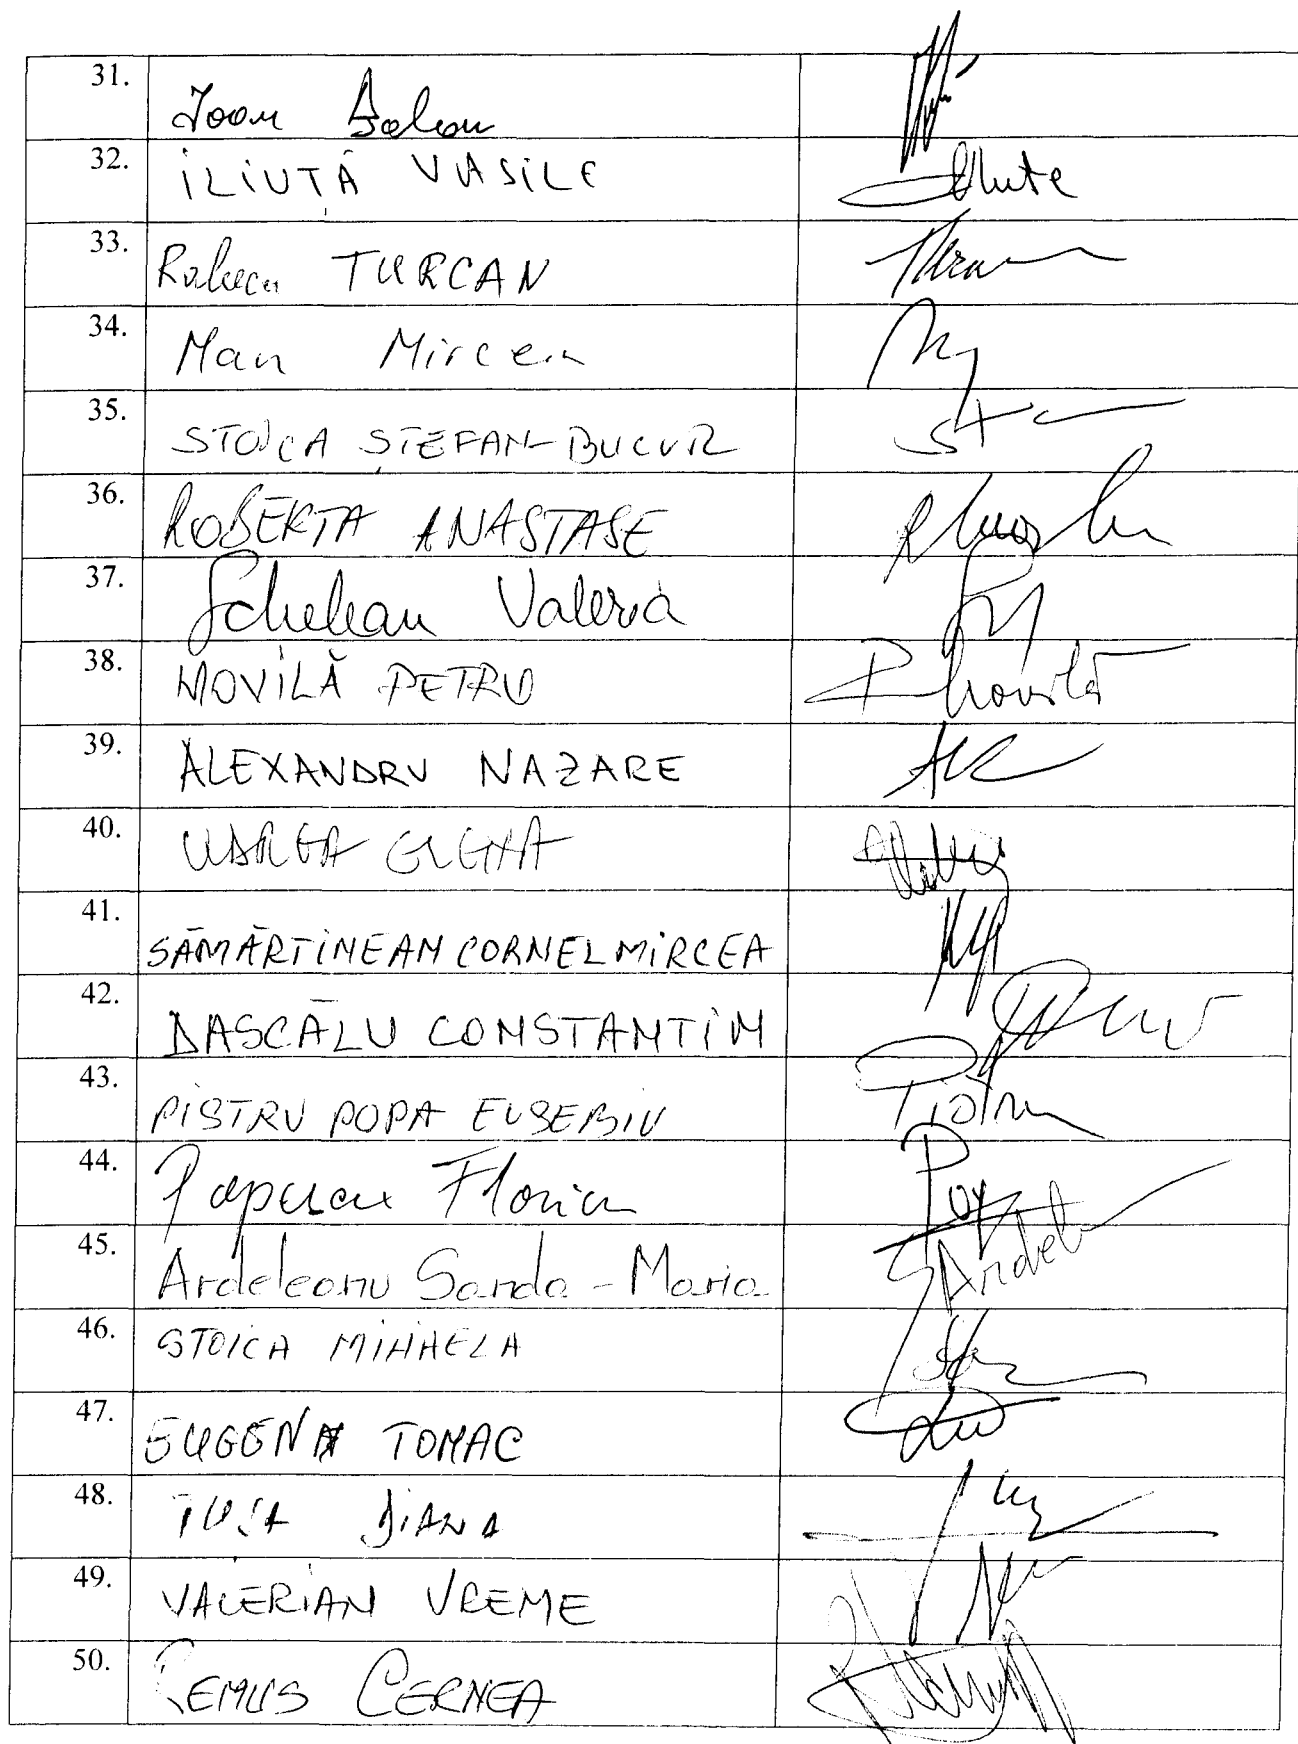 31. Ioan Balan
32. ILIUȚĂ VASILE Iliute
33. Raluca TURCAN
34. Man Mircea
35. STOICA ȘTEFAN-BUCUR
36. ROBERTA ANASTASE
37. Schelean Valeria
38. MOVILĂ PETRU P Movilă
39. ALEXANDRU NAZARE
40. UDREA ELENA
41. SĂMĂRTINEAN CORNEL MIRCEA
42. DASCĂLU CONSTANTIN
43. PISTRU POPA EUSEBIU Pistru
44. Popescu Florin
45. Ardeleanu Sanda-Maria SArdel
46. STOICA MIHAELA
47. EUGEN TOMAC
48. TUȘA DIANA
49. VALERIAN VREME
50. REMUS CERNEA